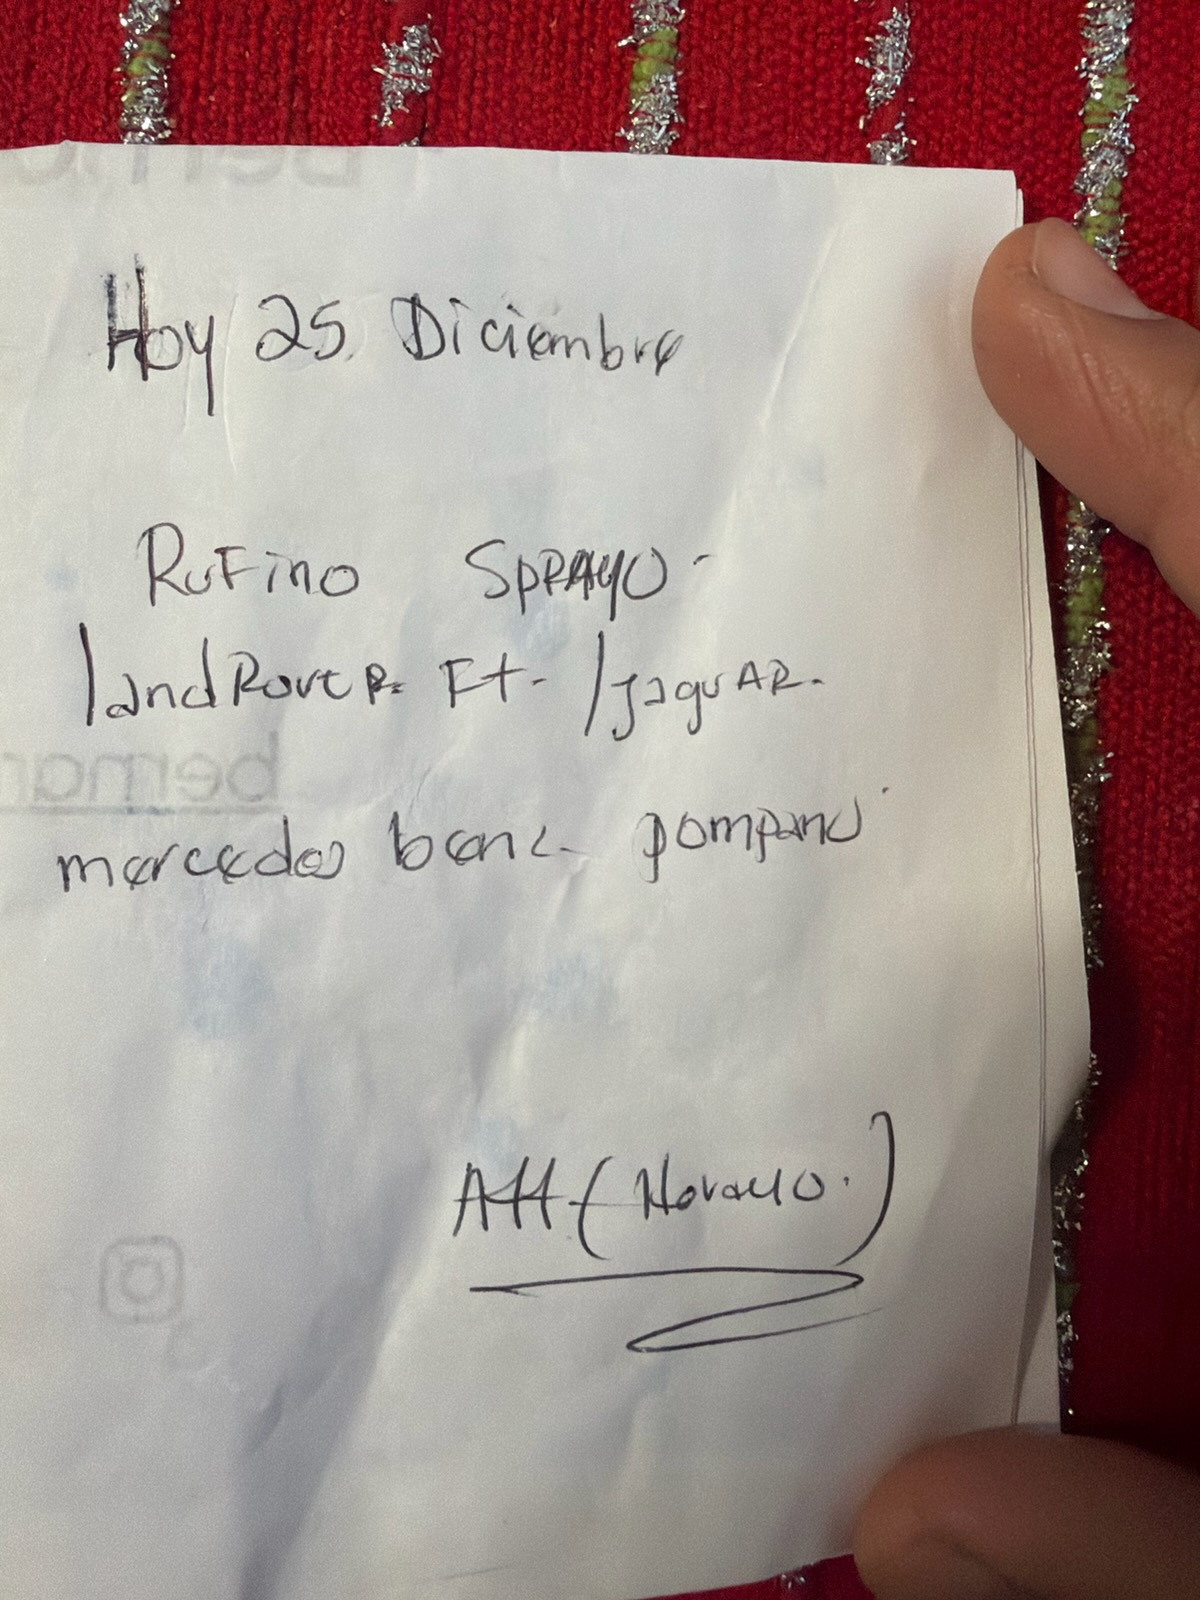 Hoy 25 Diciembre
RuFino SpRAYO-
landRoveR. Ft. /jaguAR.
bernar
mercedes benz pompano
Att (Norayo.)